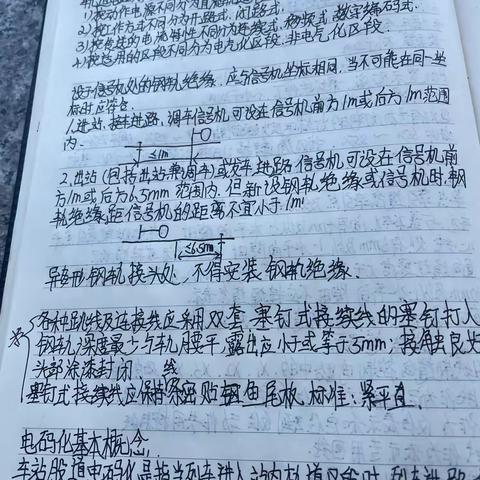 1)按动作电源不同分为直流轨道
2)按工作方式不同分为开路式、闭路式
3)按传送的电流特性不同分为连续式、频频式、数字编码式.
4)按适用的区段不同分为电气化区段、非电气化区段.
设于信号机处的钢轨绝缘,应与信号机坐标相同,当不可能在同一坐
标时应符合.
1.进站、接车进路、调车信号机可设在信号机前方1m或后方1m范围
内.
≤1m
2.出站(包括出站兼调车)或发车进路信号机可设在信号机前
方1m或后方6.5mm范围内.但新设钢轨绝缘或信号机时,钢
轨绝缘距信号机的距离不宜小于1m
≤6.5m
异型钢轨接头处,不得安装钢轨绝缘.
各种跳线及连接线应采用双套 塞钉式接续线的塞钉打入
钢轨深度最少与轨腰平,露出应小于或等于5mm;接触良好
头部涂漆封闭. 线
塞钉式接续线应保持条密贴钢鱼尾板 标准:紧平直.
电码化基本概念.
车站股道电码化是指当列车进入站内